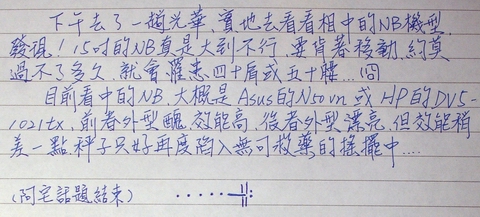 下午去了一趟光華,實地去看看相中的NB機型,
發現!15吋的NB真是大到不行,要背著移動,約莫
過不了多久,就會罹患四十肩或五十腰…囧
目前看中的NB,大概是Asus的N50vn或HP的DV5-
1021tx,前者外型醜,效能高,後者外型漂亮,但效能稍
差一點,袢子只好再度陷入無可救藥的搖擺中……
(阿宅話題結束)